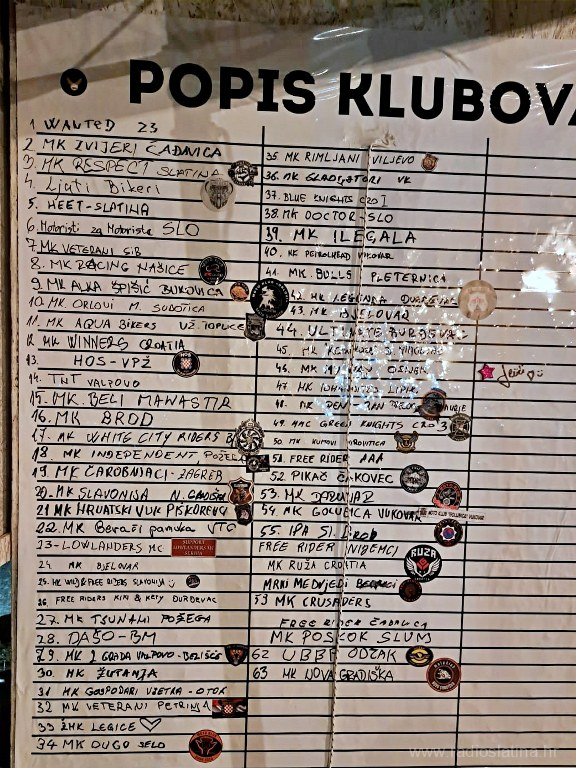 POPIS KLUBOVA
1 WANTED 23
2 MK ZVIJERI ČAĐAVICA
3. MK RESPECT SLATINA
4. Ljuti Bikeri
5. HEET-SLATINA
6. Motoristi za Motoriste SLO
7. MK VETERANI SiB
8. MK RACING NAŠICE
9. MK ALKA ŠPIŠIĆ BUKOVICA
10. MK ORLOVI M. SUBOTICA
11. MK AQUA BIKERS VŽ. TOPLICE
12. MK WINNERS CROATIA
13. HOS-VPŽ
14. TNT VALPOVO
15. MK. BELI MANASTIR
16. MK BROD
17. MK WHITE CITY RIDERS
18. MK INDEPENDENT POŽEGA
19. MK ČAROBNJACI-ZAGREB
20. MK SLAVONIJA N. GRADIŠKA
21 MK HRVATSKI VUK PIŠKOREVCI
22. MK Berači panuka VTC
23-LOWLANDERS MC
24. MK BJELOVAR
25. MK WILD & FREE RIDERS SLAVONIJA
26. FREE RIDERS KIM & KETY ĐURĐEVAC
27. MK TSUNAMI POŽEGA
28. DAŠO-BM
29. MK 2 GRADA VALPOVO-BELIŠĆE
30. MK ŽUTANJA
31 MK GOSPODARI VJETRA-OTOK
32 MK VETERANI PETRINJA
33 ŽMK LEGICE ♡
34 MK DUGO SELO
35 MK RIMLJANI VILJEVO
36. MK GLADIJATORI VK
37. BLUE KNIGHTS CRO I
38. MK DOCTOR-SLO
39. MK ILEGALA
40. MK PETROLHEAD VUKOVAR
41. MK. BULLS PLETERNICA
42. MK LEGENDA ĐURĐEVAC
43. MK BJELOVAR
44. ULTIMATE ĐURĐEVAC
45. MK
46. MK OSIJEK
47 MK LIPIK
48. MK
49. MCC GREEN KNIGHTS CRO 3
50. MK KUMOVI VIROVITICA
51. FREE RIDER AAA
52. PIKAČ ČAKOVEC
53. MK DARUVAR
54. MK GOLUBICA VUKOVAR
55. IPA Sl. Brod
FREE RIDER VNIDEMCI
MK RUŽA CROATIA
MRKI MEDVJEDI BEDENCI
59 MK CRUSADERS
FREE RIDER ČAĐAVICA
MK POSKOK SLUM
62 UBBP ODŽAK
63 MK NOVA GRADIŠKA
RUŽA
www.radioslatina.hr